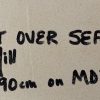 T OVER SEA
ill
90cm on MD